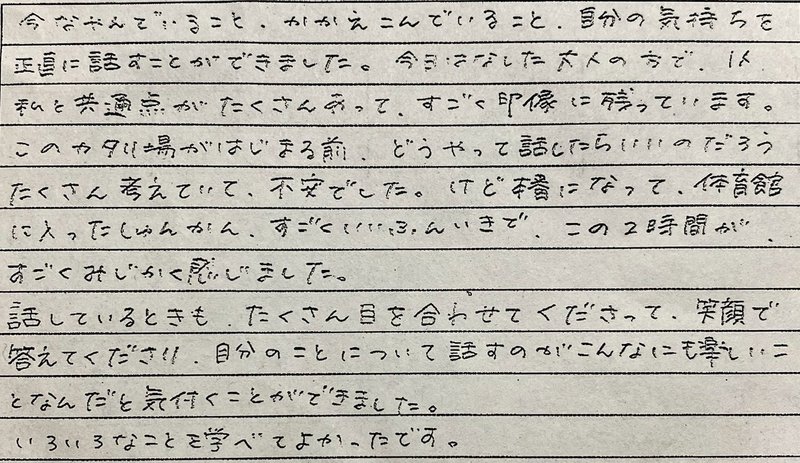 今なやんでいること、かかえこんでいること、自分の気持ちを
正直に話すことができました。今日はなした大人の方で、1人
私と共通点がたくさんあって、すごく印像に残っています。
このカタリ場がはじまる前、どうやって話したらいいのだろう
たくさん考えていて、不安でした。けど本番になって、体育館
に入ったしゅんかん、すごくいいふんいきで、この2時間が、
すごくみじかく感じました。
話しているときも、たくさん目を合わせてくださって、笑顔で
答えてくださり、自分のことについて話すのがこんなにも楽しいこ
となんだと気付くことができました。
いろいろなことを学べてよかったです。